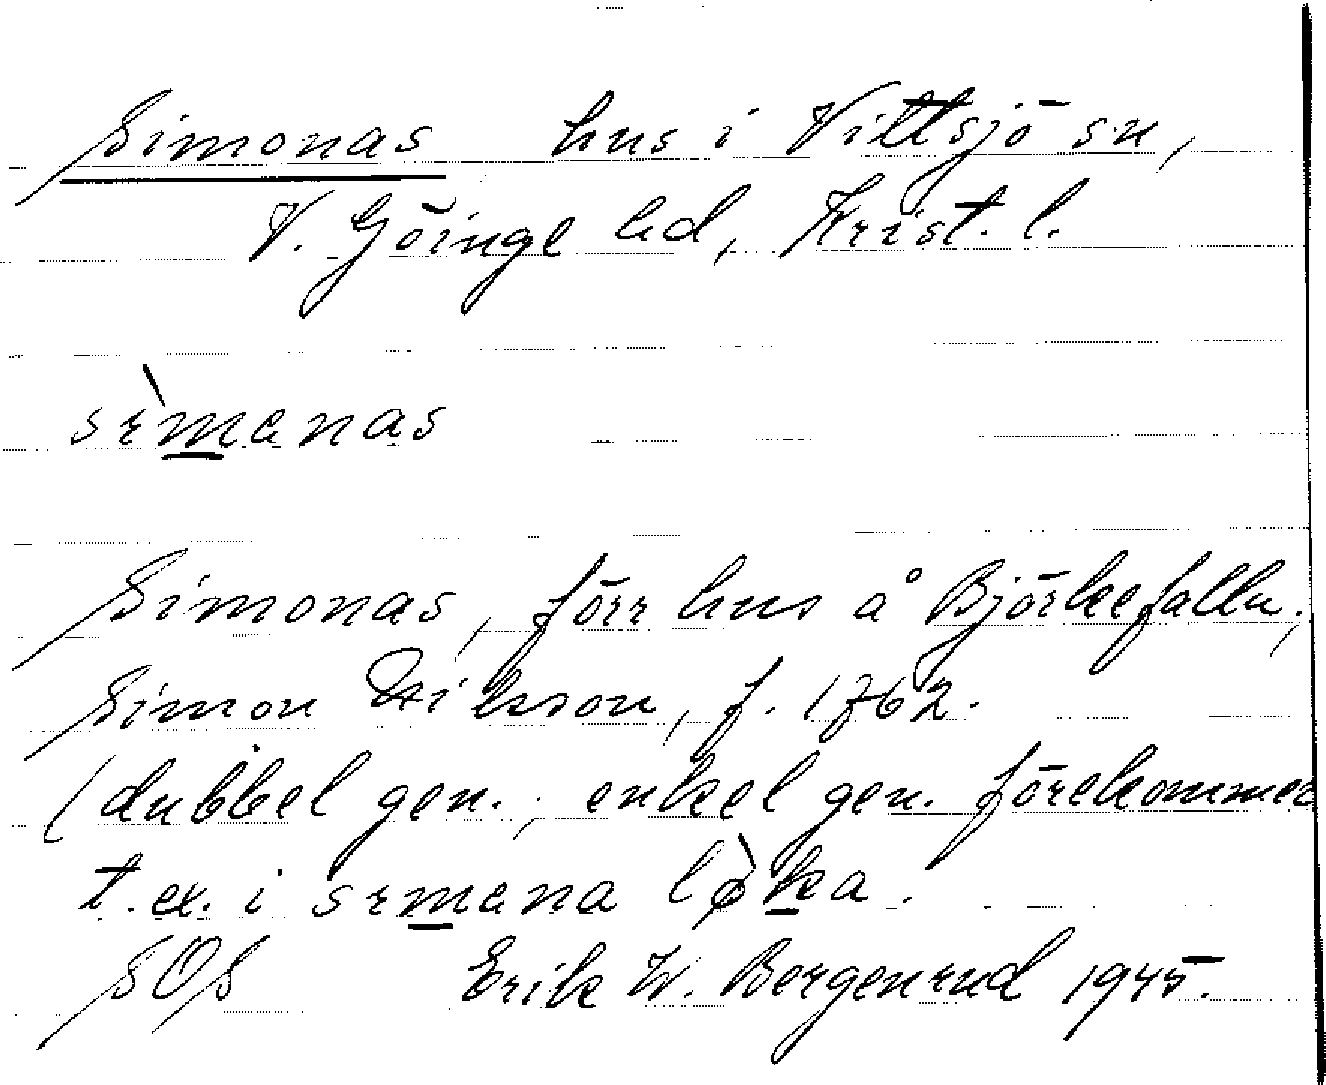 Simonas hus i Vittsjö sn,
V. Göinge hd, Krist. l.
sìmanas
Simonas, förr hus å Björkefallu.,
Simon Nilsson, f. 1762.
(dubbel gen., enkel gen. förekommer
t.ex. i sımana lø̀ka.
SOS Erik W. Bergenrud 1945.